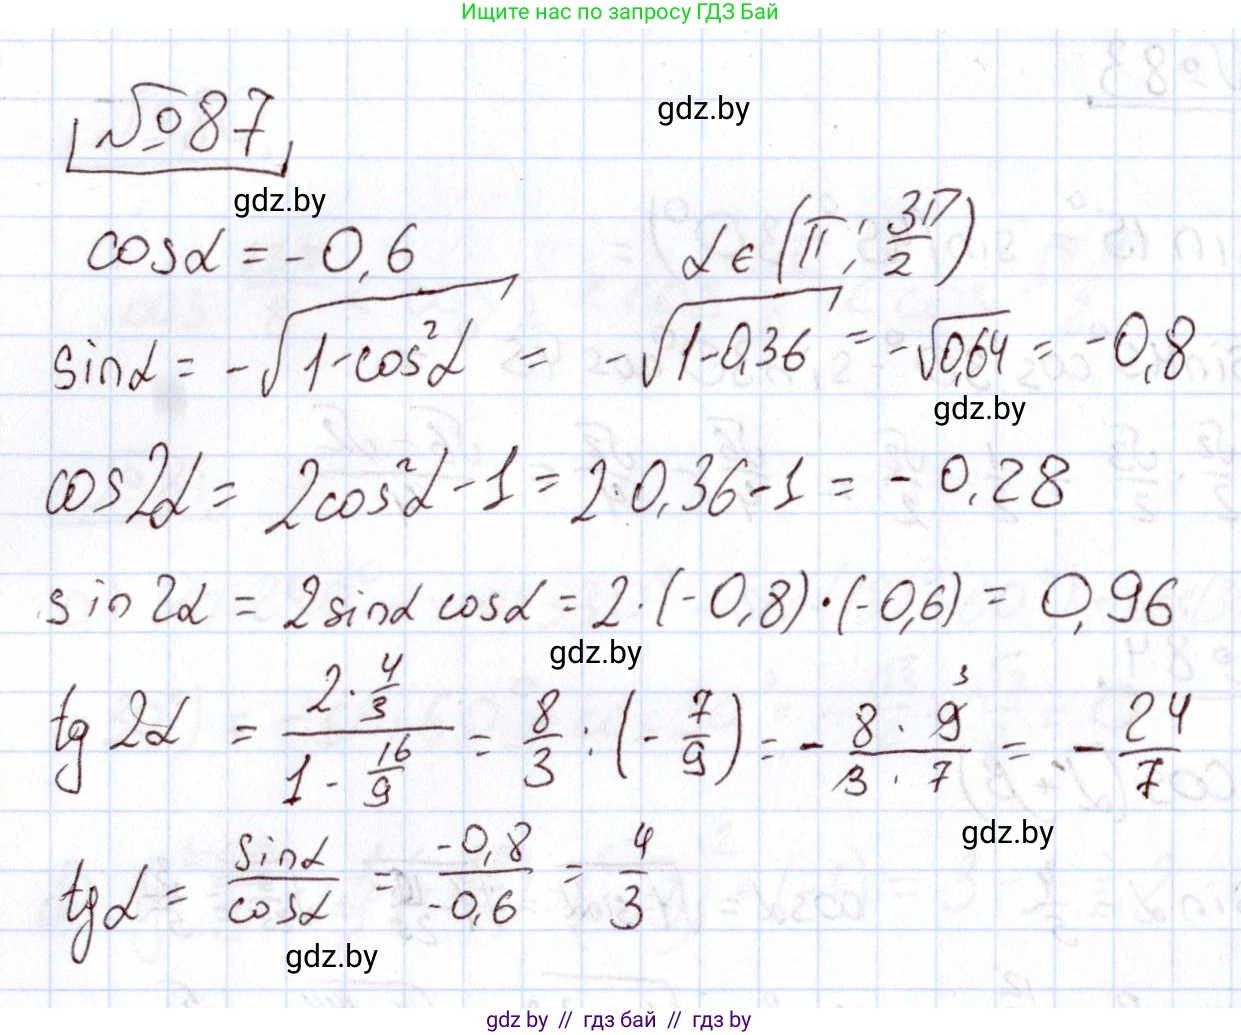 Ищите нас по запросу ГДЗ Бай
№87
gdz.by
gdz.by
cosα = -0,6 α ∈ (π; 3π/2)
sinα = -√(1-cos²α) = -√(1-0,36) = -√0,64 = -0,8
gdz.by
cos2α = 2cos²α - 1 = 2·0,36-1 = -0,28
sin2α = 2sinα cosα = 2·(-0,8)·(-0,6) = 0,96
gdz.by
tg2α = (2·4/3)/(1 - 16/9) = 8/3 : (-7/9) = - (8·9 3)/(3·7) = - 24/7
gdz.by
tgα = sinα/cosα = -0,8/-0,6 = 4/3
gdz.by
gdz by // гдз бай // гдз by